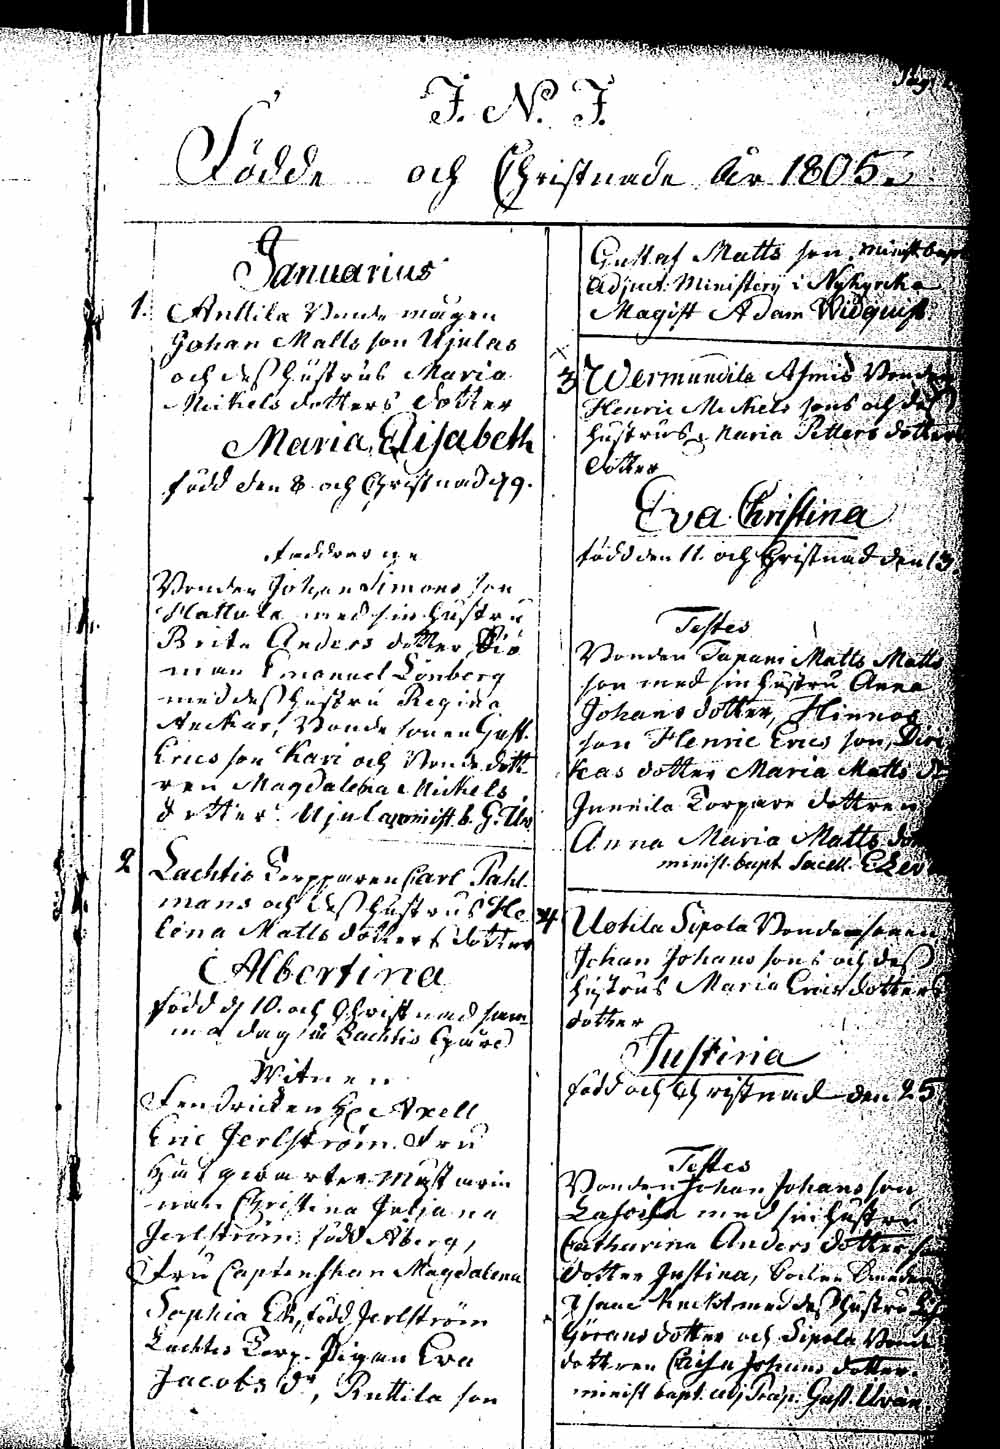 J. N. J.
Födde och Christnade År 1805.
Januarius
1. Anttila Bonde mågen
Johan Matts son Ujulas
och dess hustrus Maria
Mickels dotters dotter
Maria Elisabeth
född den 8 och Christnad 9.
Faddrarne
Bonden Johan Simons son
Hattula med sin hustru
Brita Anders dotter, Sjö
man Emanuel Lönberg
med dess hustru Regina
Anckar, Bonde sonen Gust.
Erics son Kari och Bonde dott
ren Magdalena Mickels
dotter Ujula minist. b. G. Urv
2 Lachtis Torpparen Carl Tahl
mans och dess hustrus He
lena Matts dotters dotter
Albertina
född d 10. och Christnad sam
ma dag i Lachtis
Witnen
Fendricken H Axell
Eric Jerlström. Fru
nan Christina Juliana
Jerlström född Åberg,
Fru Captenskan Magdalena
Sophia Ek, född Jerlström
Lachtis Torp. Pigan Eva
Jacobs dr, Ruttila son
Gustaf Matts son. minist bapt
Adjunct. Ministery i Nykyrcka
Magist Adam Widquist.
3 Wermundila Asmis Bonden
Henric Mickels sons och dess
hustrus Maria Petters dotters
dotter
Eva Christina
född den 11. och Christnad den 13.
Testes
Bonden Tapani Matts Matts
son med sin hustru Anna
Johans dotter, Hinnos
son Henric Erics son, Diri
kas dotter Maria Matts do
Junnila Torpare dottren
Anna Maria Matts dott
minist. bapt. Sacell.
4 Uotila Sipola Bonde sonen
Johan Johans sons och dess
hustrus Maria Erics dotters
dotter
Justina
född och Christnad den 25.
Testes
Bonden Johan Johans son
med sin hustru
Catharina Anders dotter
dotter Justina, Socken Smeden
Isaac med dess hustru
Görans dotter och Sipola Bonde
dottren Caisa Johans dotter.
minist bapt. Adj. Gust. Urvan.